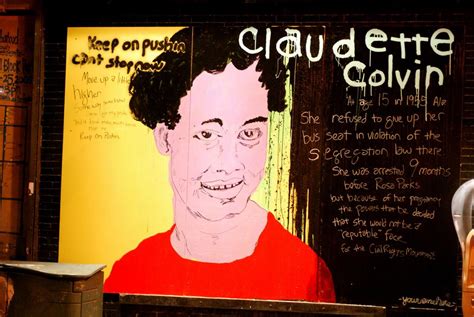 Keep on pushin
can't stop now
Move up a little
higher
Keep on Pushin
Claudette
Colvin
At age 15 in 1955 Ala
She refused to give up her
bus seat in violation of the
segregation law there.
She was arrested 9 months
before Rosa Parks
but because of her pregnancy
the powers that be decided
that she would not be a
"reputable" face
for the Civil Rights Movement